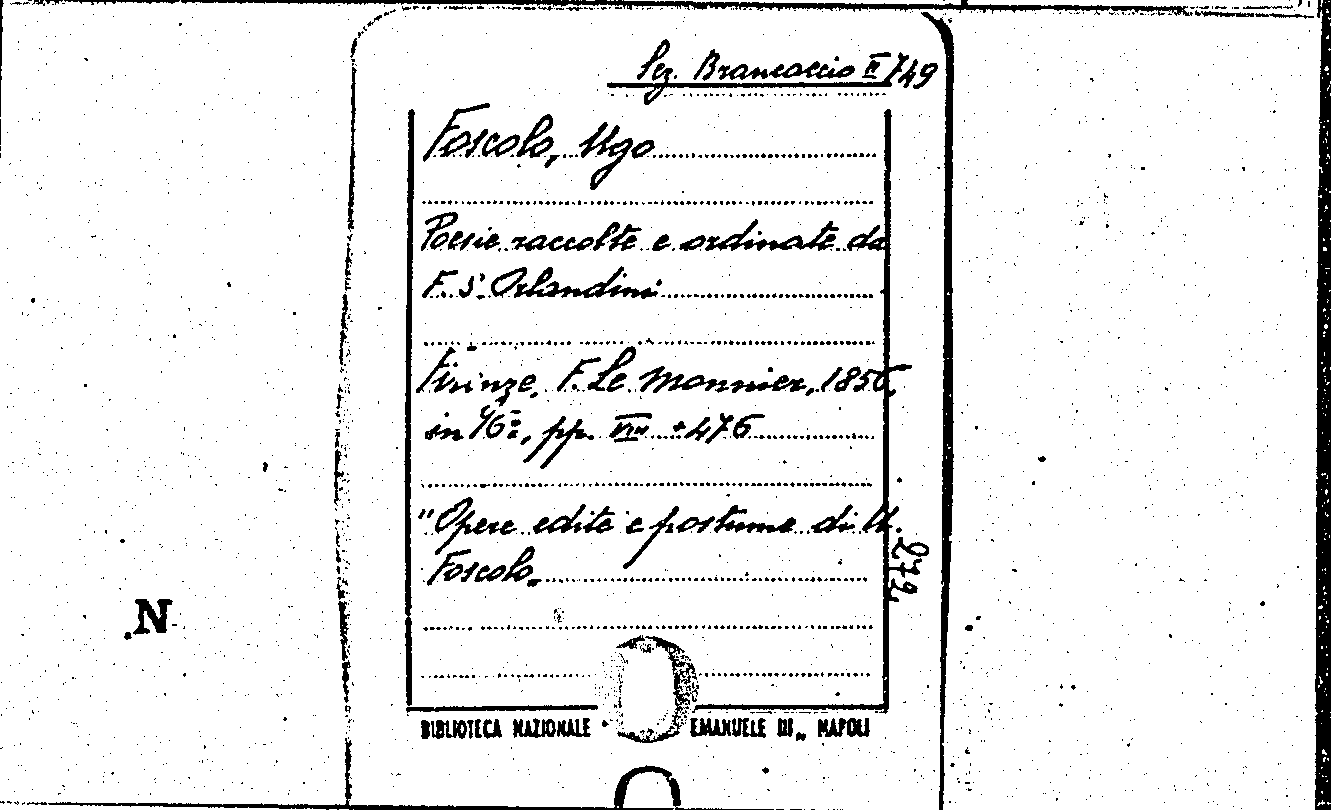 Sez. Brancaccio II J49
Foscolo, Ugo
Poesie raccolte e ordinate da
F. S. Orlandini
Firenze, F. Le Monnier, 1856,
in 16º, pp. VIII + 476
"Opere edite e postume di U.
Foscolo„
272
N
BIBLIOTECA NAZIONALE EMANUELE III„ NAPOLI